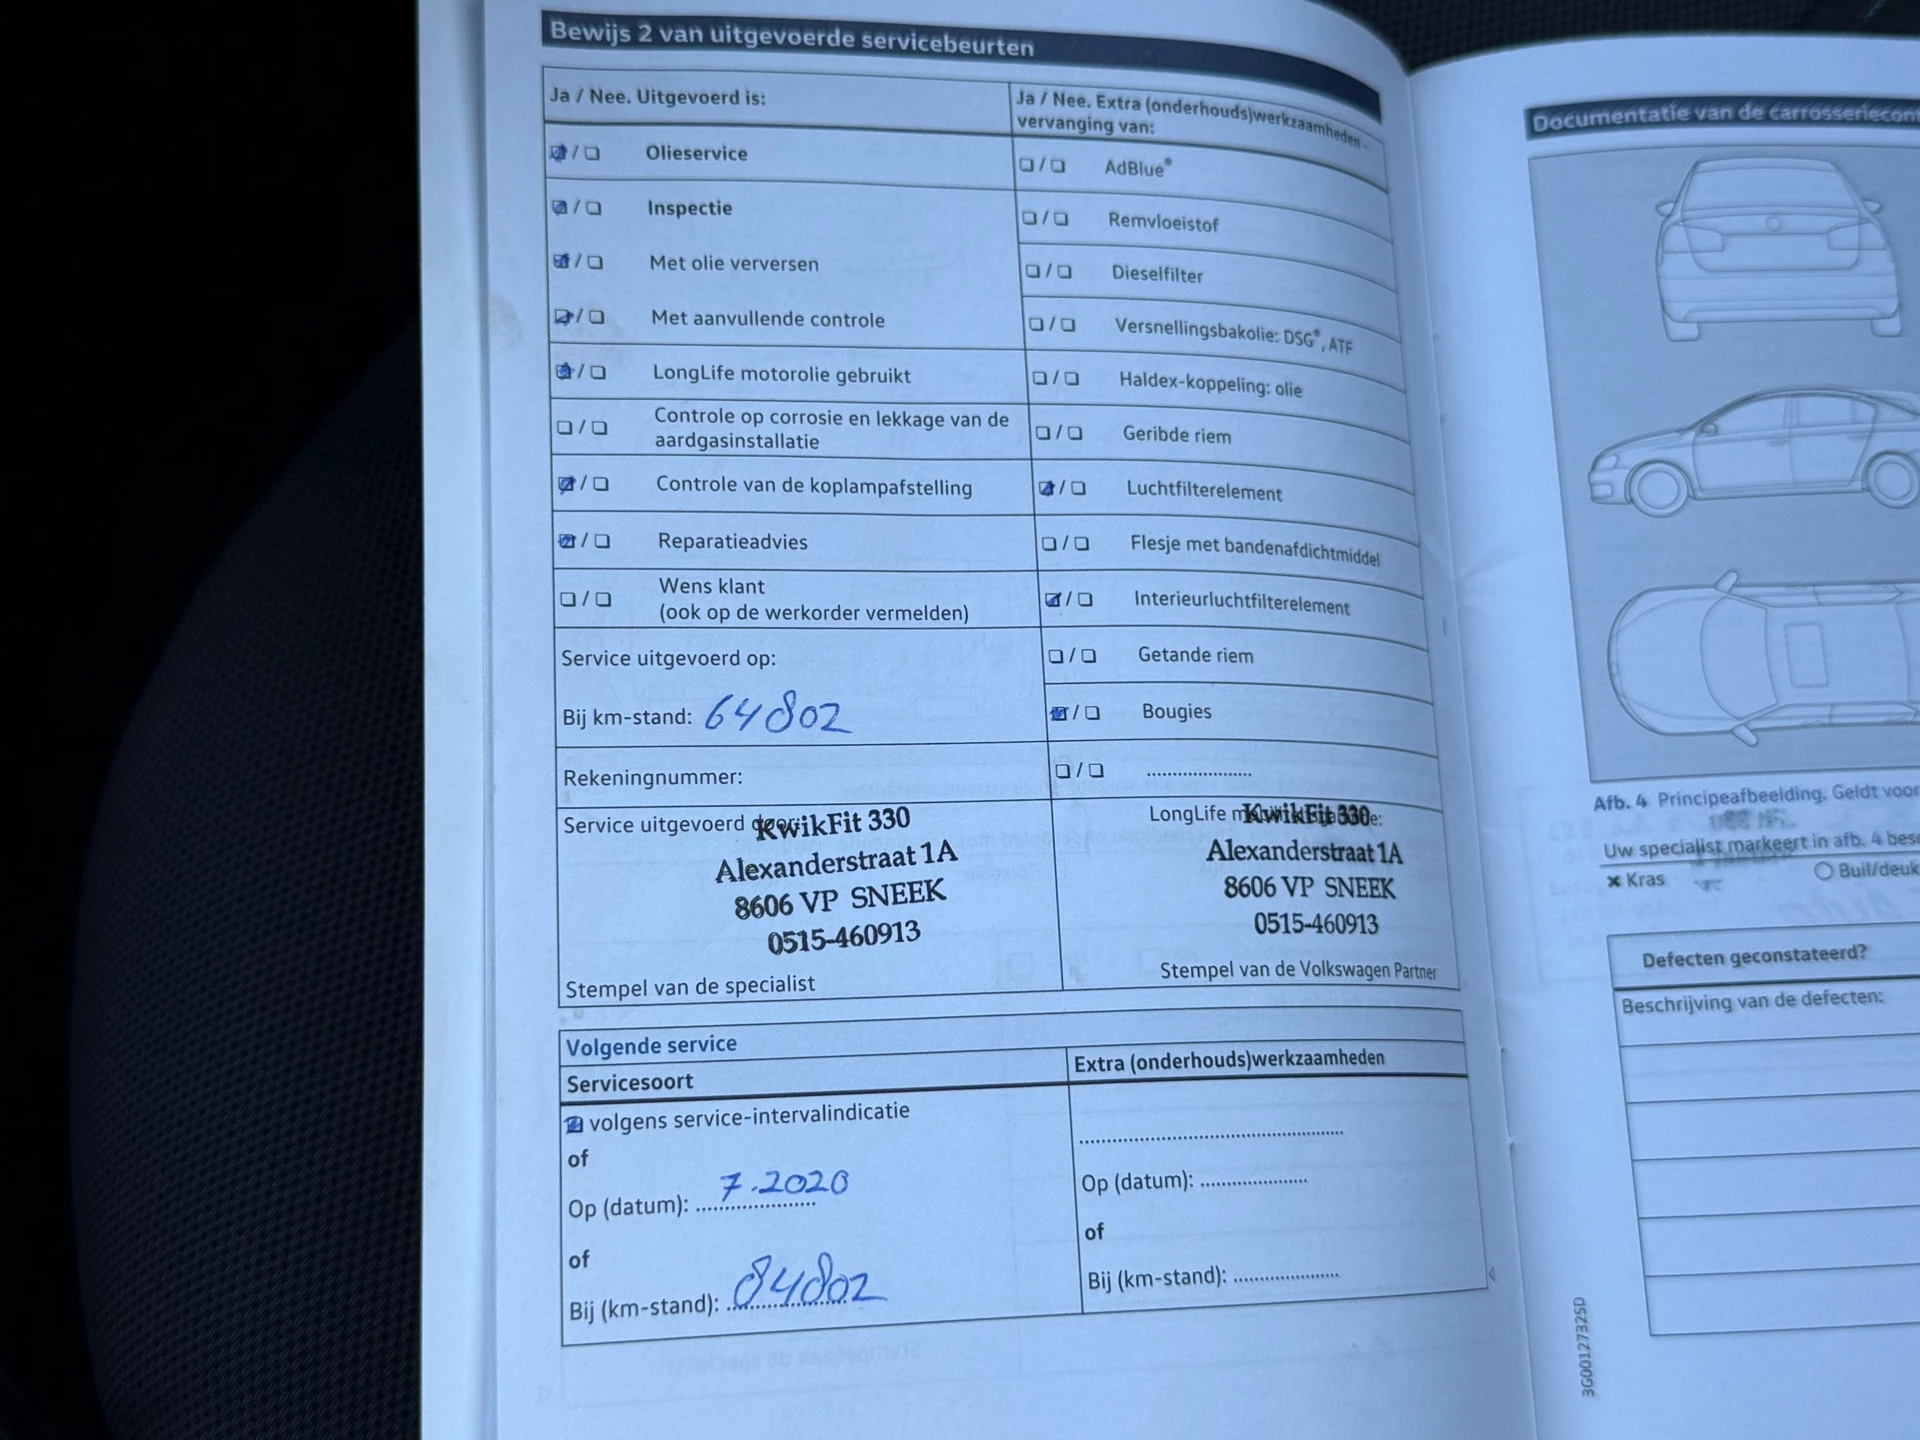 Bewijs 2 van uitgevoerde servicebeurten
Ja / Nee. Uitgevoerd is:
Olieservice
Inspectie
Met olie verversen
Met aanvullende controle
LongLife motorolie gebruikt
Controle op corrosie en lekkage van de
aardgasinstallatie
Controle van de koplampafstelling
Reparatieadvies
Wens klant
(ook op de werkorder vermelden)
Service uitgevoerd op:
Bij km-stand: 64802
Rekeningnummer:
Service uitgevoerd door:
KwikFit 330
Alexanderstraat 1A
8606 VP SNEEK
0515-460913
Stempel van de specialist
Ja / Nee. Extra (onderhouds)werkzaamheden -
vervanging van:
AdBlue®
Remvloeistof
Dieselfilter
Versnellingsbakolie: DSG®, ATF
Haldex-koppeling: olie
Geribde riem
Luchtfilterelement
Flesje met bandenafdichtmiddel
Interieurluchtfilterelement
Getande riem
Bougies
......................
LongLife
KwikFit 330
Alexanderstraat 1A
8606 VP SNEEK
0515-460913
Stempel van de Volkswagen Partner
Volgende service
Servicesoort
volgens service-intervalindicatie
of
Op (datum): 7.2020
of
Bij (km-stand): 84802
Extra (onderhouds)werkzaamheden
Op (datum): ......................
of
Bij (km-stand): ......................
Documentatie van de carrosseriecont
Afb. 4 Principeafbeelding. Geldt voor
Uw specialist markeert in afb. 4 besc
× Kras
Buil/deuk
Defecten geconstateerd?
Beschrijving van de defecten:
3G0012732SD